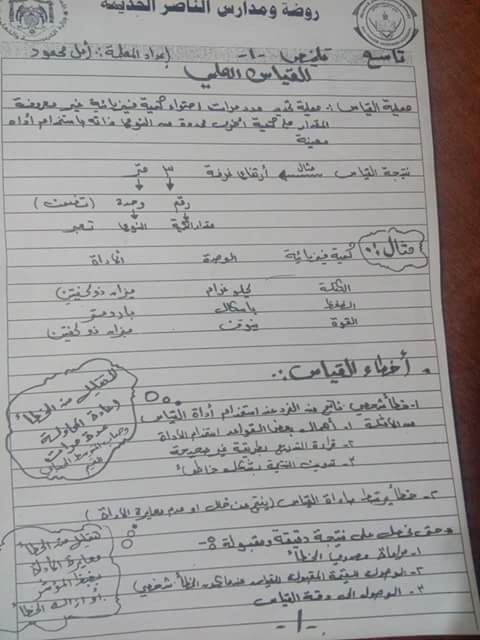 روضة ومدارس الناصر الحديثة
تاسع تلخيص -١- إعداد المعلمة: أمل محمود
القياس العلمي
عملية القياس: عملية تحديد عدد مرات احتواء كمية فيزيائية غير معروفة
المقدار على كمية أخرى محددة من النوع ذاته باستخدام أداة
معينة
نتيجة القياس مثال أرتفاع غرفة ٣ متر
رقم وحدة (تضمنت)
مقدار الكمية النوع تعبر
مثال: كمية فيزيائية الوحدة الأداة
الكتلة كيلو غرام ميزان ذو كفتين
الضغط باسكال بارومتر
القوة نيوتن ميزان ذو كفتين
أخطاء القياس:
١- خطأ شخصي ناتج من الفرد عند استخدام أداة القياس
من الأمثلة ١. إهمال بعض القواعد استخدام الأداة
٢- قراءة التدريج بطريقة غير صحيحة
٣- تدوين النتيجة بشكل خاطئ
التقليل من الخطأ
إعادة المحاولة
عدة مرات
وحساب المتوسط الحسابي
٢- خطأ مرتبط بأداة القياس (ينتج من خلل او عدم معايرة الأداة)
وحتى نحصل على نتيجة دقيقة ومقبولة:
١- مراعاة مصدري الخطأ
٢- الوصول للقيمة المقبولة للقياس عندما يكون الخطأ شخصي
٣- الوصول الى دقة القياس
تقليل من الخطأ
معايرة الأداة
بضبط المؤشر
أو إزالة الخطأ
-١-